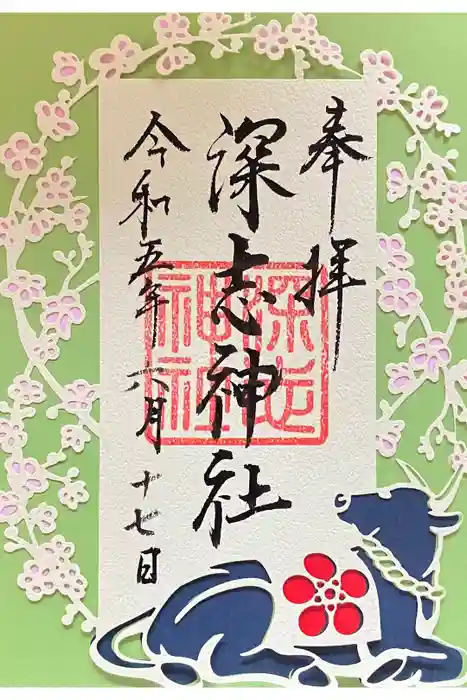 奉拝
深志神社
令和五年六月十七日
深志
神社